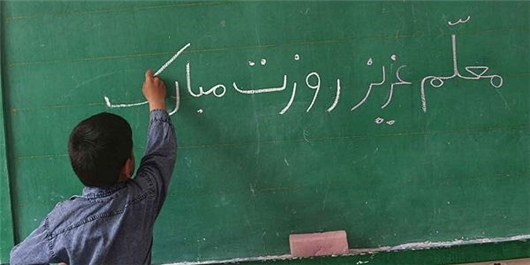 معلّم عزیز روزت مبارک